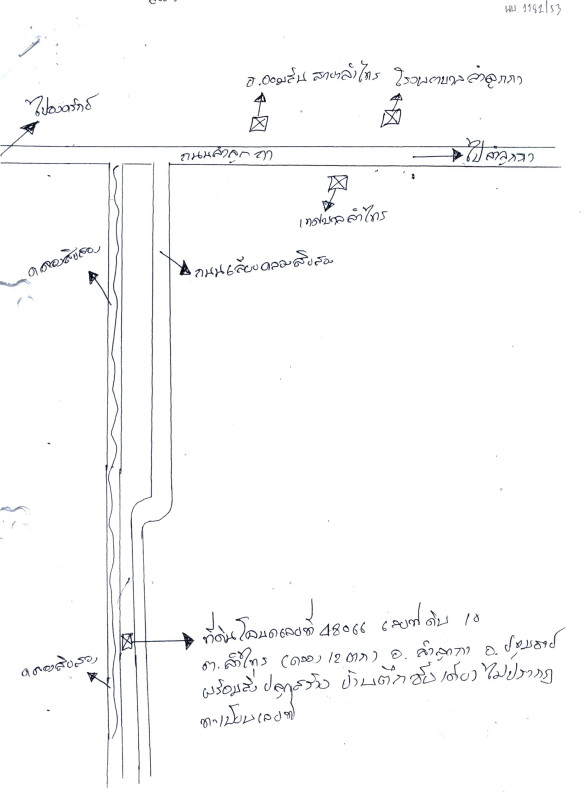 ผบ. 1192/53
ธ.ออมสิน สาขาลำไทร
โรงพยาบาลลำลูกกา
ไปองครักษ์
ถนนลำลูกกา
ไปลำลูกกา
เทศบาลลำไทร
คลองสิบสอง
ถนนเลียบคลองสิบสอง
ที่ดินโฉนดเลขที่ 48066 เลขที่ดิน 10
ต.ลำไทร (คลอง 12 ตก) อ. ลำลูกกา จ. ปทุมธานี
คลองสิบสอง
พร้อมสิ่งปลูกสร้าง บ้านตึกชั้นเดียว ไม่ปรากฏ
ทะเบียนเลขที่